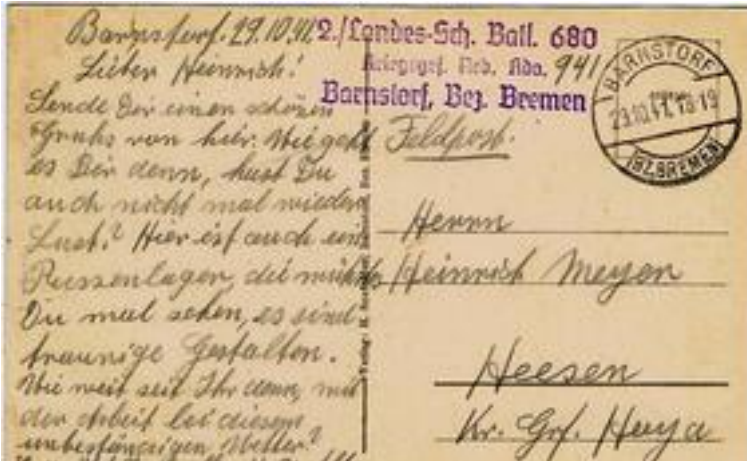 Barnstorf. 29.10.41.
Lieber Heinrich!
Sende Dir einen schönen
Gruß von hier. Wie geht
es Dir denn, hast Du
auch nicht mal wieder
Lust? Hier ist auch ein
Russenlager, die müßtest
Du mal sehen, es sind
traurige Gestalten.
Wie weit seit Ihr denn, mit
der Arbeit bei diesem
unbeständigen Wetter?
2./Landes-Sch. Batl. 680
Kriegsgef. Arb. Kdo. 941
Barnstorf, Bez. Bremen
BARNSTORF
29.10.41. 18-19
(BZ. BREMEN)
Feldpost.
Herrn
Heinrich Meyer
Heesen
Kr. Grf. Hoya